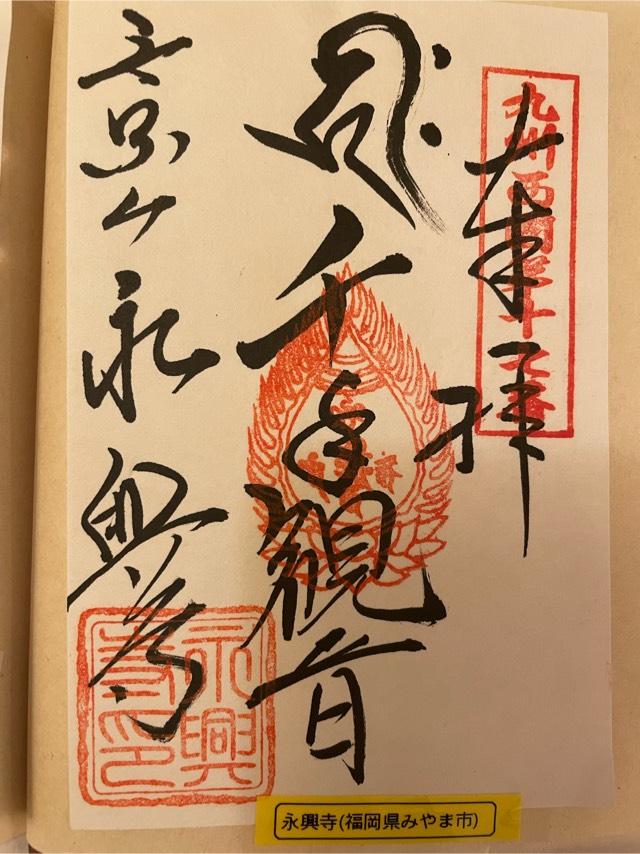 九州西国第十七番
奉拝
千手観音
永興寺
永興寺印
永興寺(福岡県みやま市)